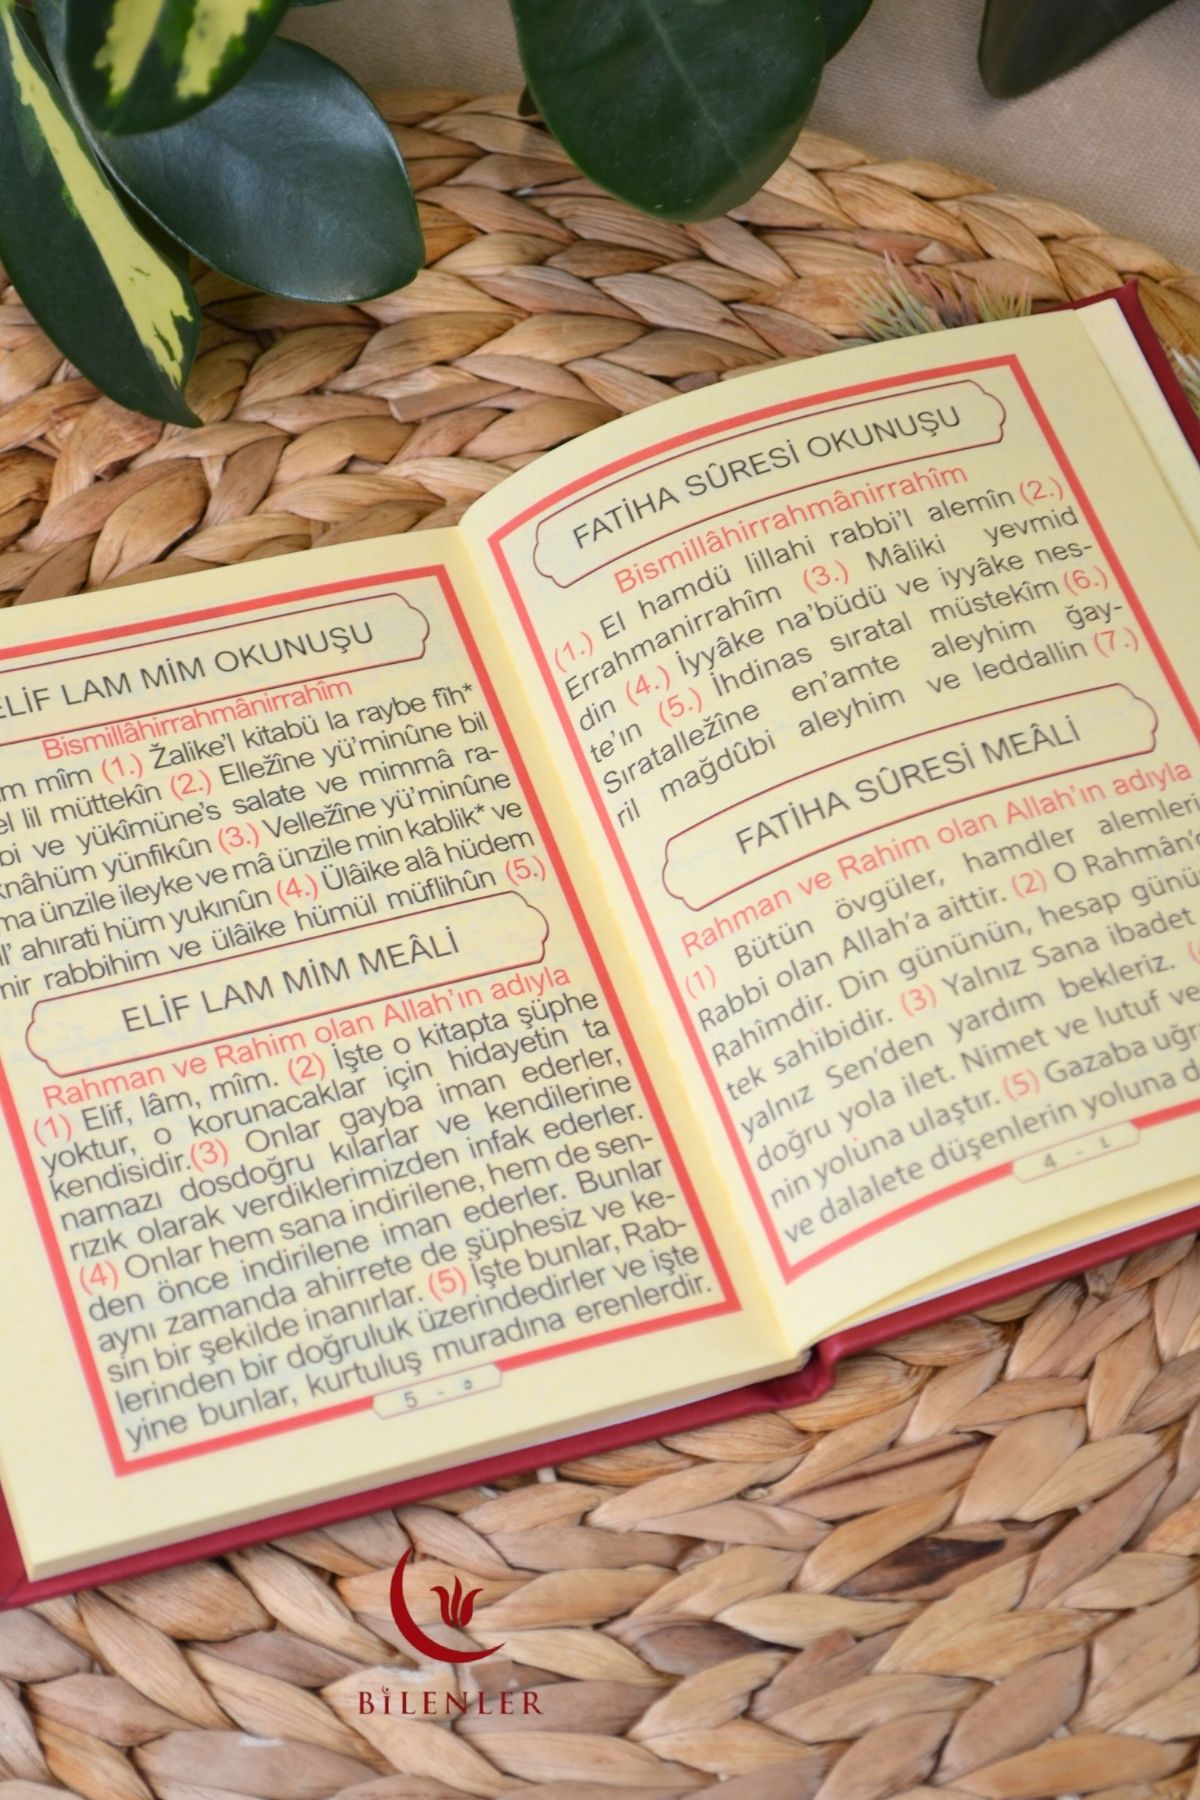 FATİHA SÛRESİ OKUNUŞU
Bismillâhirrahmânirrahîm
(1.) El hamdü lillahi rabbi'l alemîn (2.)
Errahmanirrahîm (3.) Mâliki yevmid
din (4.) İyyâke na'büdü ve iyyâke nes-
te'ın (5.) İhdinas sıratal müstekîm (6.)
Sıratalležîne en'amte aleyhim ğay-
ril mağdûbi aleyhim ve leddallin (7.)
FATİHA SÛRESİ MEÂLİ
Rahman ve Rahim olan Allah'ın adıyla
(1) Bütün övgüler, hamdler
Rabbi olan Allah'a aittir. (2) O
Rahîmdir. Din gününün, hesap
tek sahibidir. (3) Yalnız Sana ibadet
yalnız Sen'den yardım bekleriz.
doğru yola ilet. Nimet ve lutuf
nin yoluna ulaştır. (5) Gazaba
ve dalalete düşenlerin yoluna
4 - ٤
ELİF LAM MİM OKUNUŞU
Bismillâhirrahmânirrahîm
mîm (1.) Žalike'l kitabü la raybe fîh*
lil müttekîn (2.) Elležîne yü'minûne bil
ve yükîmüne's salate ve mimmâ ra-
yünfikûn (3.) Velležîne yü'minûne
ünzile ileyke ve mâ ünzile min kablik* ve
ahırati hüm yukınûn (4.) Ülâike alâ hüdem
rabbihim ve ülâike hümül müflihûn (5.)
ELİF LAM MİM MEÂLİ
Rahman ve Rahim olan Allah'ın adıyla
(1) Elif, lâm, mîm. (2) İşte o kitapta şüphe
yoktur, o korunacaklar için hidayetin ta
kendisidir.(3) Onlar gayba iman ederler,
namazı dosdoğru kılarlar ve kendilerine
rızık olarak verdiklerimizden infak ederler.
(4) Onlar hem sana indirilene, hem de sen-
den önce indirilene iman ederler. Bunlar
aynı zamanda ahirrete de şüphesiz ve ke-
sin bir şekilde inanırlar. (5) İşte bunlar, Rab-
lerinden bir doğruluk üzerindedirler ve işte
yine bunlar, kurtuluş muradına erenlerdir.
5 - ٥
BİLENLER